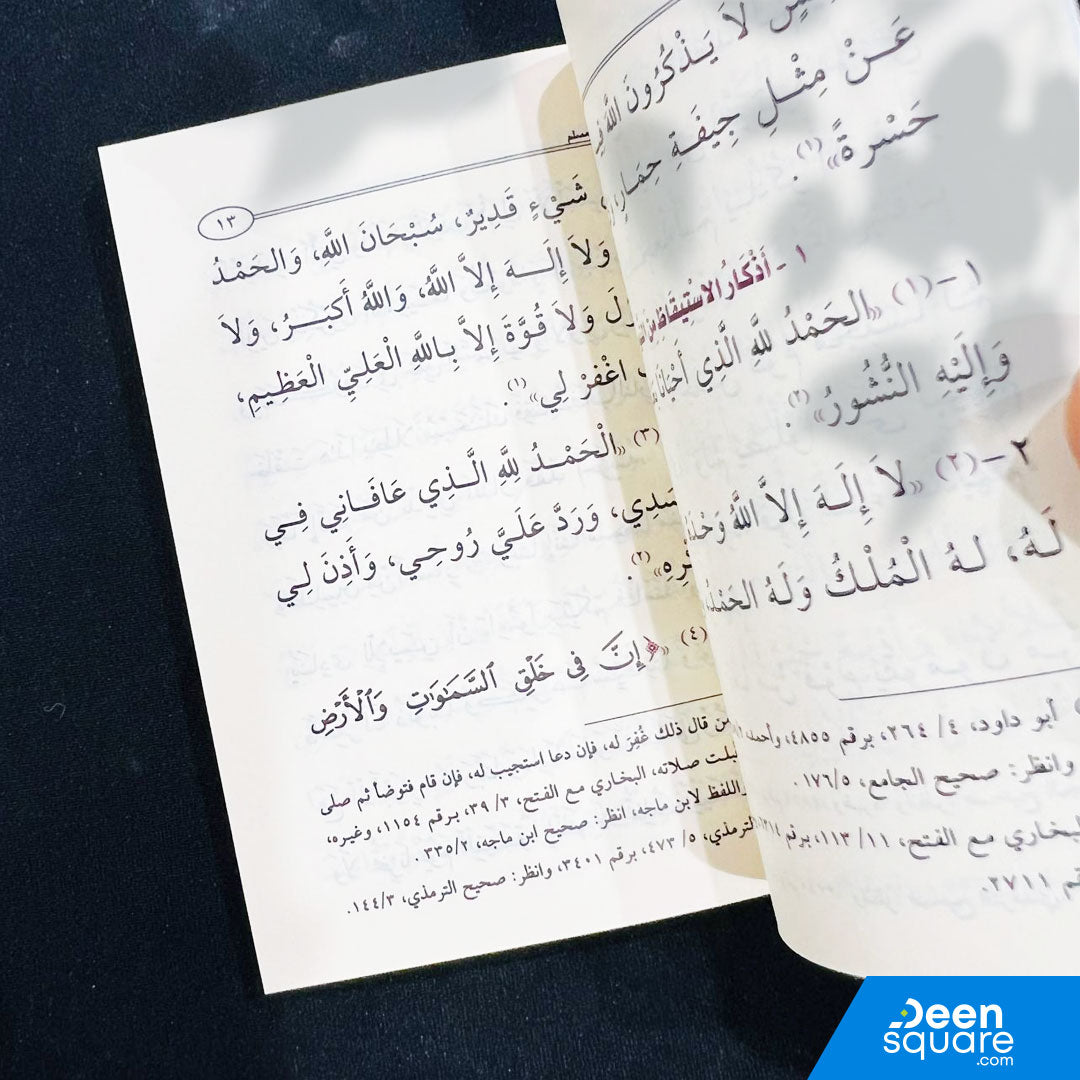 لَا يَذْكُرُونَ اللَّهَ
عَنْ مِثْلِ جِيفَةِ حِمَارٍ
حَسْرةً»(١).
١ - أَذْكَارُ الاسْتِيقَاظِ مِنَ
١ -(١) «الحَمْدُ للهِ الَّذِي أَحْيَانَا
وَإِلَيْهِ النُّشُورُ»(٢).
٢ -(٢) «لاَ إِلَهَ إِلاَّ اللَّهُ وَحْدَهُ
لَهُ، لهُ الْمُلْكُ وَلَهُ الحَمْدُ،
أبو داود، ٤/ ٢٦٤، برقم ٤٨٥٥، وأحمد
وانظر: صحيح الجامع، ١٧٦/٥.
البخاري مع الفتح، ١١/ ١١٣، برقم
٢٧١١.
١٣
شَيْءٍ قَدِيرٌ، سُبْحَانَ اللَّهِ، وَالحَمْدُ
وَلاَ إِلَــهَ إِلاَّ اللَّهُ، وَاللَّهُ أَكبَــرُ، وَلاَ
وَلاَ قُوَّةَ إِلاَّ بِاللَّهِ الْعَلِيِّ الْعَظِيمِ،
اغْفرْ لِي»(١).
(٣) «الْحَمْـدُ لِلَّهِ الَّـذِي عَافَـانِي فِـي
وَرَدَّ عَلَيَّ رُوحِي، وَأَذِنَ لِي
(٢).
(٤) «﴿إِنَّ فِي خَلْقِ ٱلسَّمَٰوَٰتِ وَٱلْأَرْضِ
من قال ذلك غُفِرَ له، فإن دعا استجيب له، فإن قام فتوضأ ثم صلى
صلاته، البخاري مع الفتح، ٣/ ٣٩، برقم ١١٥٤، وغيره،
واللفظ لابن ماجه، انظر: صحيح ابن ماجه، ٣٣٥/٢.
الترمذي، ٥/ ٤٧٣، برقم ٣٤٠١، وانظر: صحيح الترمذي، ١٤٤/٣.
Deen
square
.com